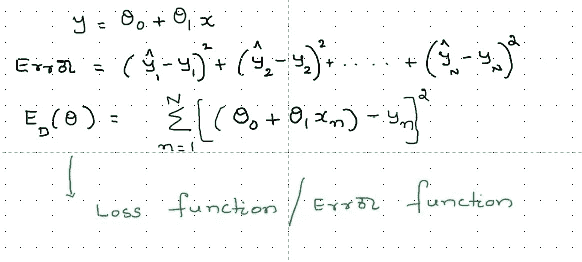 y = θ₀ + θ₁ x
Error = (ŷ₁ - y₁)² + (ŷ₂ - y₂)² + ..... + (ŷ_N - y_N)²
E_D(θ) = Σ_{n=1}^{N} [(θ₀ + θ₁ x_n) - y_n]²
↓ Loss function / Error function